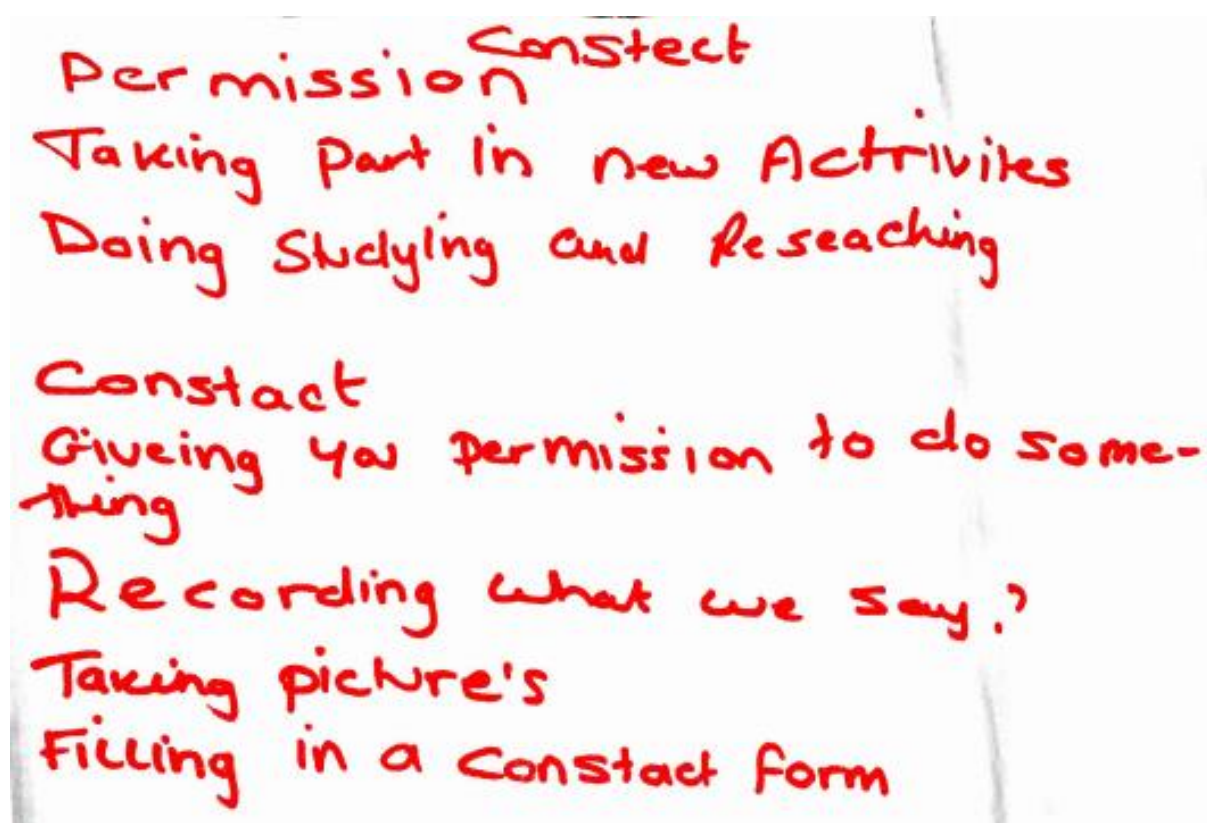 Permission Constect
Taking part in new Actrivites
Doing Studying and Reseaching
Constact
Giveing you permission to do some-
thing
Recording what we say?
Taking picture's
Filling in a Constact form